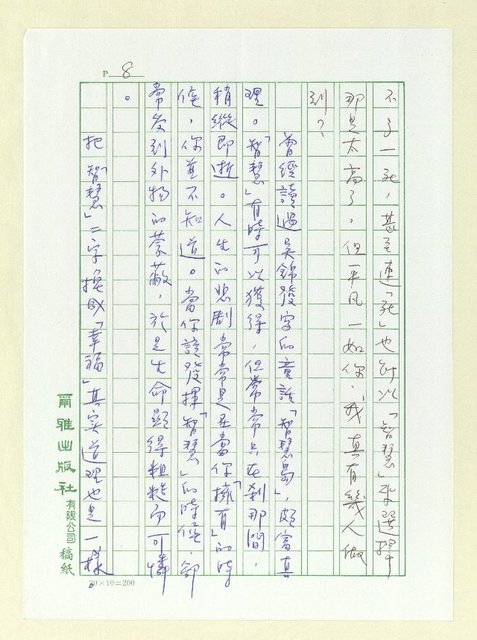 P 8
不了一死，甚至連「死」也能以「智慧」來選擇
那是太高了。但平凡一如你、我真有幾人做
到？
曾經讀過吳錦發寫的童話「智慧島」，頗富真
理。「智慧」有時可以獲得，但常常只在剎那間，
稍縱即逝。人生的悲劇常常是在當你「擁有」的時
候，你並不知道。當你該發揮「智慧」的時候，卻
常受到外物的蒙蔽，於是生命顯得粗糙而可憐
。
把「智慧」二字，換成「幸福」其實道理也是一樣。
爾雅出版社有限公司稿紙
20×10=200